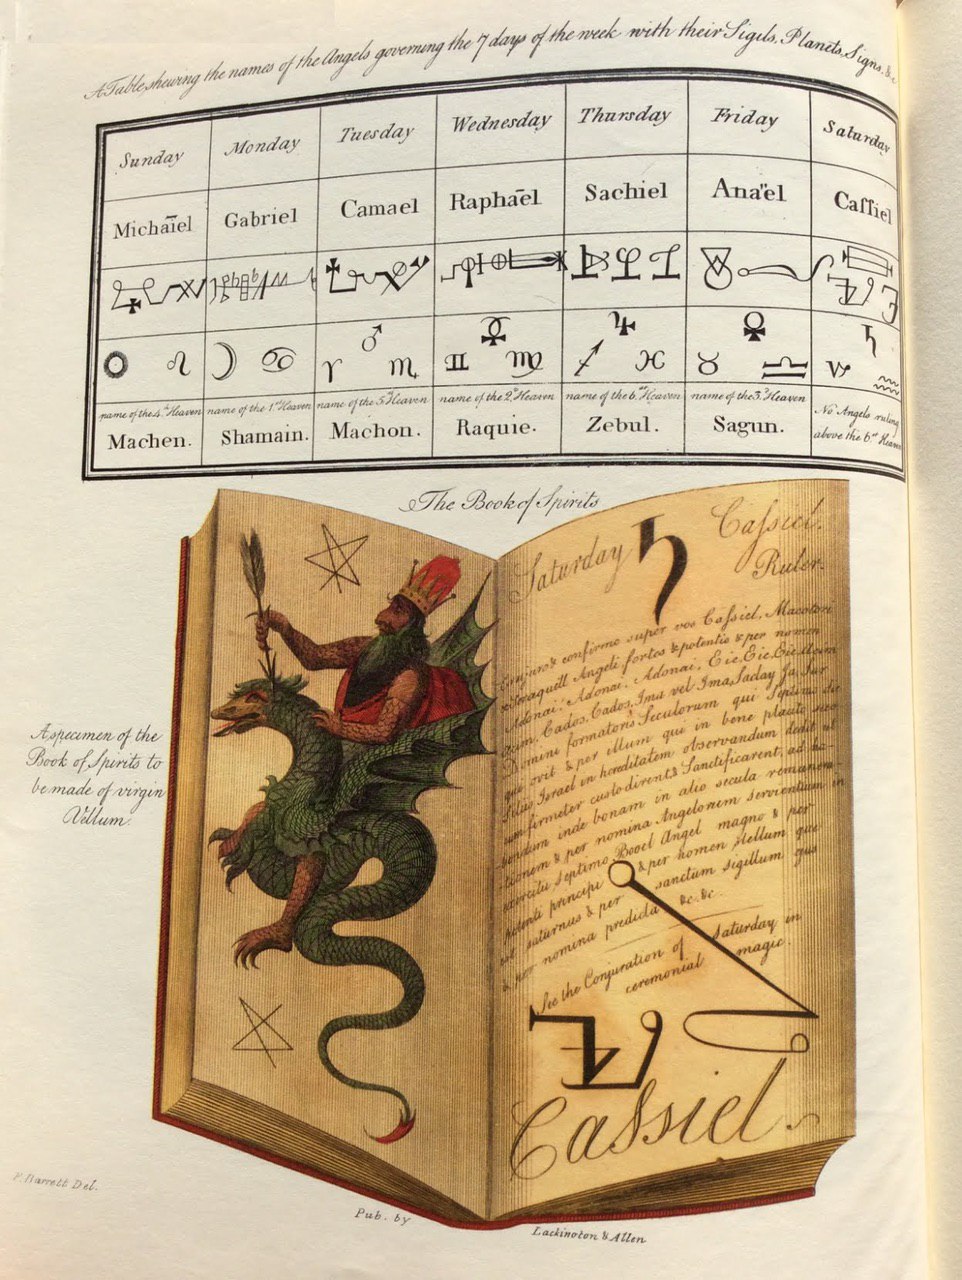 A Table, shewing the names of the Angels governing the 7 days of the week with their Sigils, Planets, Signs, &c
Sunday Monday Tuesday Wednesday Thursday Friday Saturday
Michaïel Gabriel Camael Raphāel Sachiel Ana"el Caſſiel
☉ ♌ ☽ ♋ ♂ ♈ ♏ ☿ ♊ ♍ ♃ ♐ ♓ ♀ ♉ ♎ ♄ ♑ ♒
name of the 4th Heaven name of the 1st Heaven name of the 5th Heaven name of the 2d Heaven name of the 6th Heaven name of the 3d Heaven No Angels ruling
above the 6th Heaven
Machen. Shamain. Machon. Raquie. Zebul. Sagun.
The Book of Spirits
A specimen of the
Book of Spirits to
be made of virgin
Vellum.
Saturday ♄ Caſsiel.
Ruler.
Conjuro & confirmo super vos Caſsiel, Macoton
& Seraquiell Angeli fortes & potentis & per nomen
Adonai, Adonai, Adonai, Eie, Eie, Eie,
Cados, Cados, Ima vel Ima, Saday Ja, Sar
Domini formatoris Seculorum qui Septimo die
quievit & per illum qui in bene placito suo
filiis Israel in hereditatem observandum dedit ut
eum firmeter custodirent & Sanctificarent, ad ha-
bendum inde bonam in alio secula remunera-
tionem & per nomina Angelorum servientium in
exercitu Septimo Booel Angel magno & per
potenti principi & per nomen stellum que
est saturnus & per sanctum sigillum ejus
& per nomina predicta &c. &c.
See the Conjuration of Saturday in
ceremonial magic.
Caſsiel.
F. Barrett Del.
Pub. by Lackington & Allen